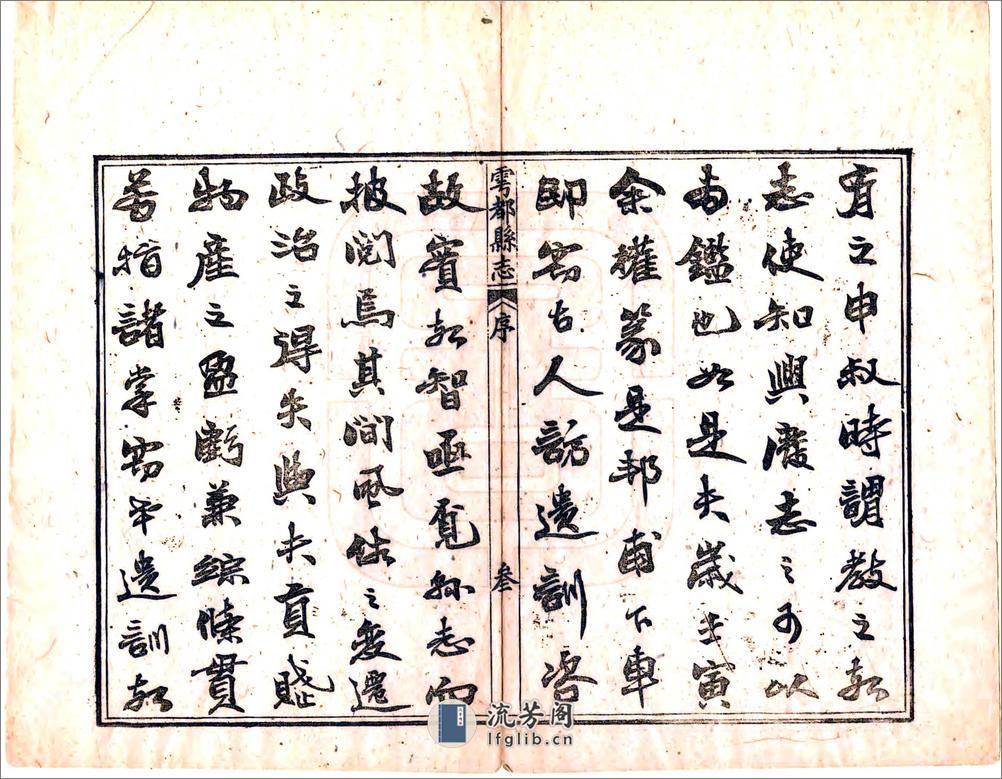 有之申叔時謂教之於
志使知興廢志之可以
為鑑也如是夫歲壬寅
余權篆是邦甫下車
即竊古人訪遺訓咨
雩都縣志 序 叁
故實於智亟覓縣志而
披閱焉其間風俗之變遷
政治之得失與夫貢賦
物產之盈虧兼綜條貫
若指諸掌竊幸遺訓於
流芳阁
lfglib.cn